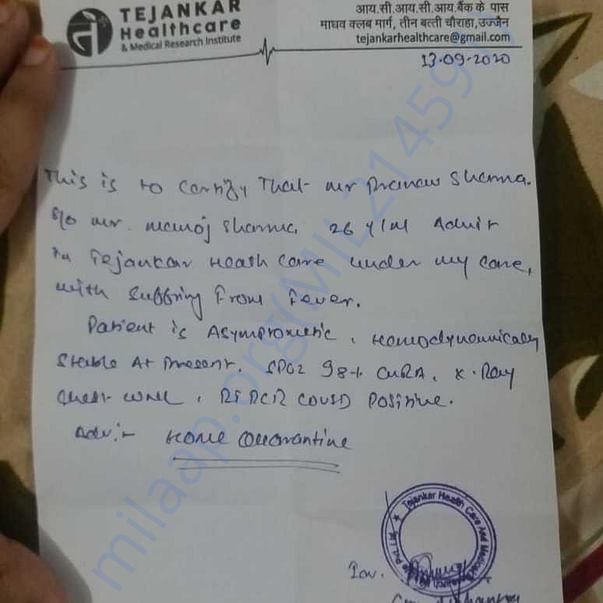 TEJANKAR
Healthcare
& Medical Research Institute
आय.सी.आय.सी.आय.बैंक के पास
माधव क्लब मार्ग, तीन बत्ती चौराहा,उज्जैन
tejankarhealthcare@gmail.com
13-09-2020
This is to Certify That mr Pranav Sharma.
S/o mr. manoj Sharma 26 y/m Admit
in Tejankar Heath Care under my care,
with Suffring From Fever.
Patient is Asymptometic, Hemodynamically
Stable At Present. SPO2 98%, X-Ray
Chest WNL, RTPCR COVID Positive.
Adv:- Home Quarantine
Tejankar Health Care And Medical Research Pvt.Ltd.
milaap.org/MIL21459